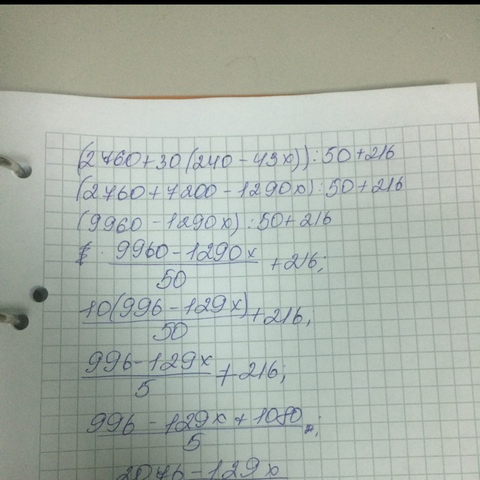 (2760+30(240-43x)):50+216
(2760+7200-1290x):50+216
(9960-1290x):50+216
9960-1290x
50
+216;
10(996-129x)
50
+216;
996-129x
5
+216;
996-129x+1080
5
;
2076-129x